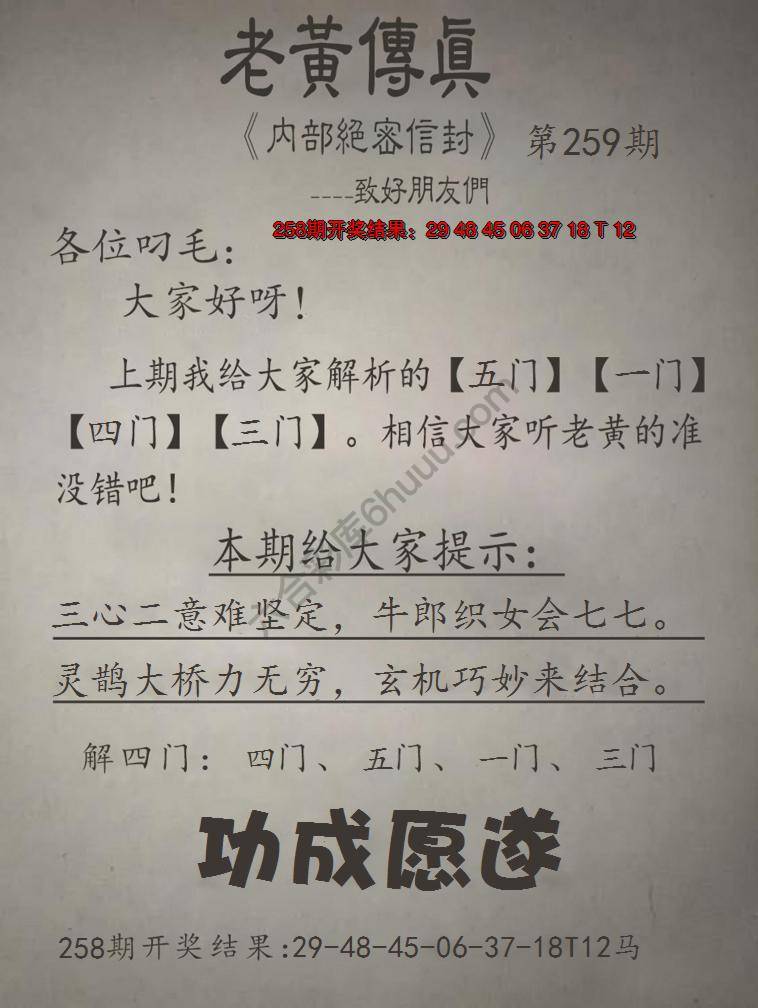 老黃傳眞
《内部絕密信封》 第259期
----致好朋友們
258期开奖结果：29 48 45 06 37 18 T 12
各位叼毛：
大家好呀！
上期我给大家解析的【五门】【一门】
【四门】【三门】。相信大家听老黄的准
没错吧！
六合彩库6huuu.com
本期给大家提示：
三心二意难坚定，牛郎织女会七七。
灵鹊大桥力无穷，玄机巧妙来结合。
解四门： 四门、 五门、 一门、 三门
功成愿遂
258期开奖结果:29-48-45-06-37-18T12马